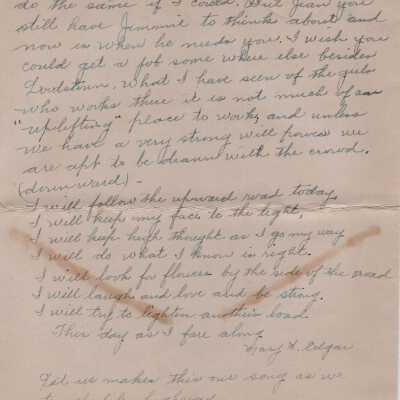 do the same if I could. But Jean you
still have Jimmie to think about and
now is when he needs you. I wish you
could get a job some where else besides
what I have seen of the girls
who works there it is not much of an
"uplifting" place to work, and unless
we have a very strong will power we
are apt to be drawn with the crowd.
(downward) -
I will follow the upward road today,
I will keep my face to the light,
I will keep high thought as I go my way
I will do what I know is right.
I will look for flowers by the side of the road
I will laugh and love and be strong.
I will try to lighten another's load.
This day as I fare along
Mary S. Edgar
Let us makes this our song as we